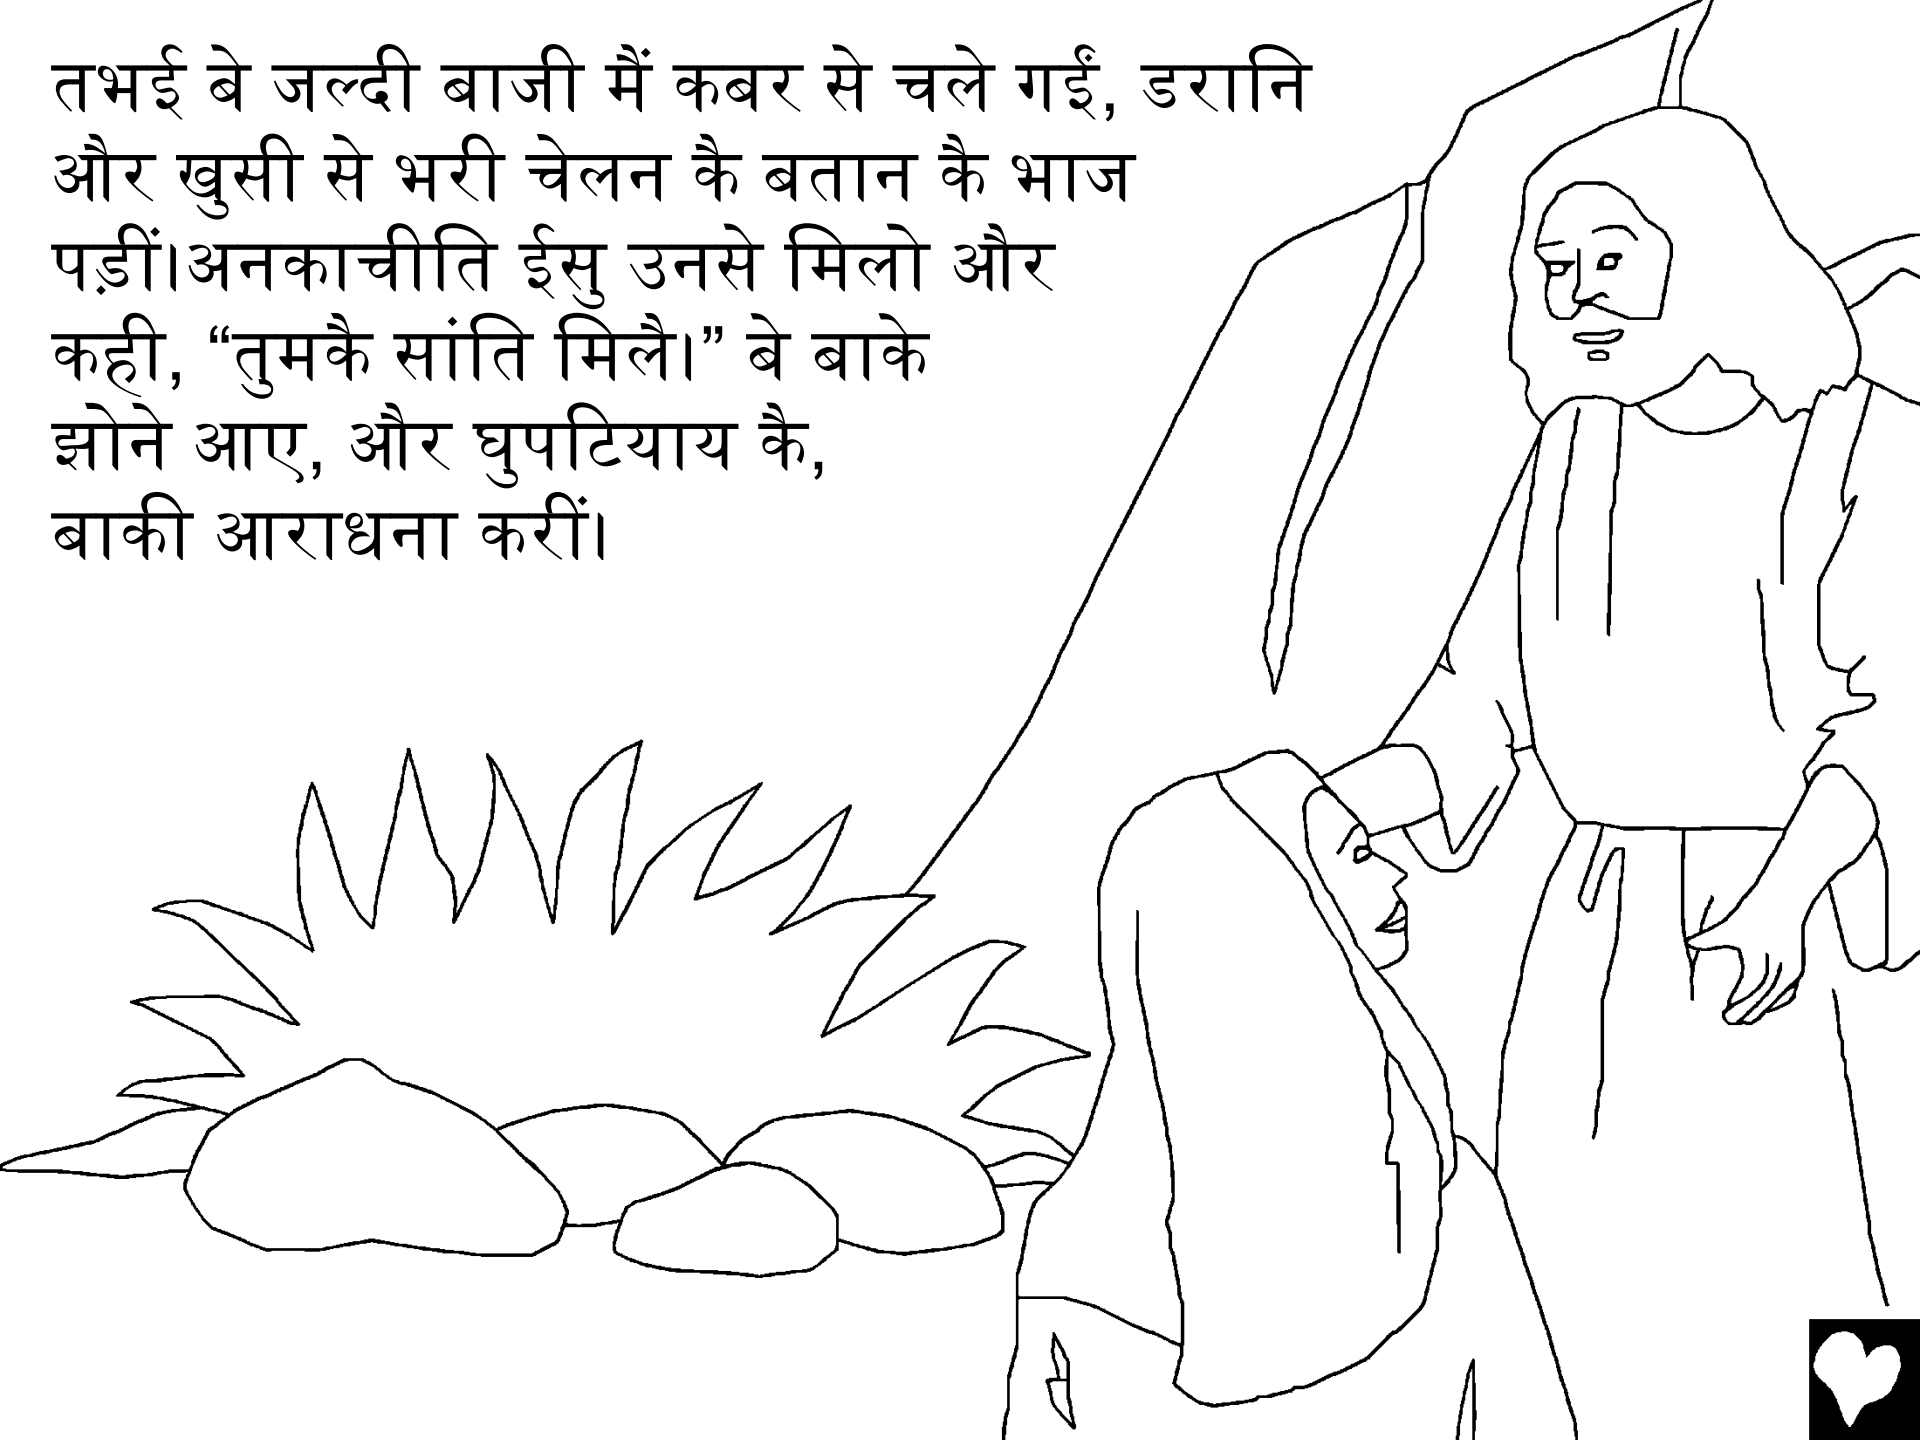 तभई बे जल्दी बाजी मैं कबर से चले गईं, डरानि
और खुसी से भरी चेलन कै बतान कै भाज
पड़ीं।अनकाचीति ईसु उनसे मिलो और
कही, “तुमकै सांति मिलै।” बे बाके
झोने आए, और घुपटियाय कै,
बाकी आराधना करीं।